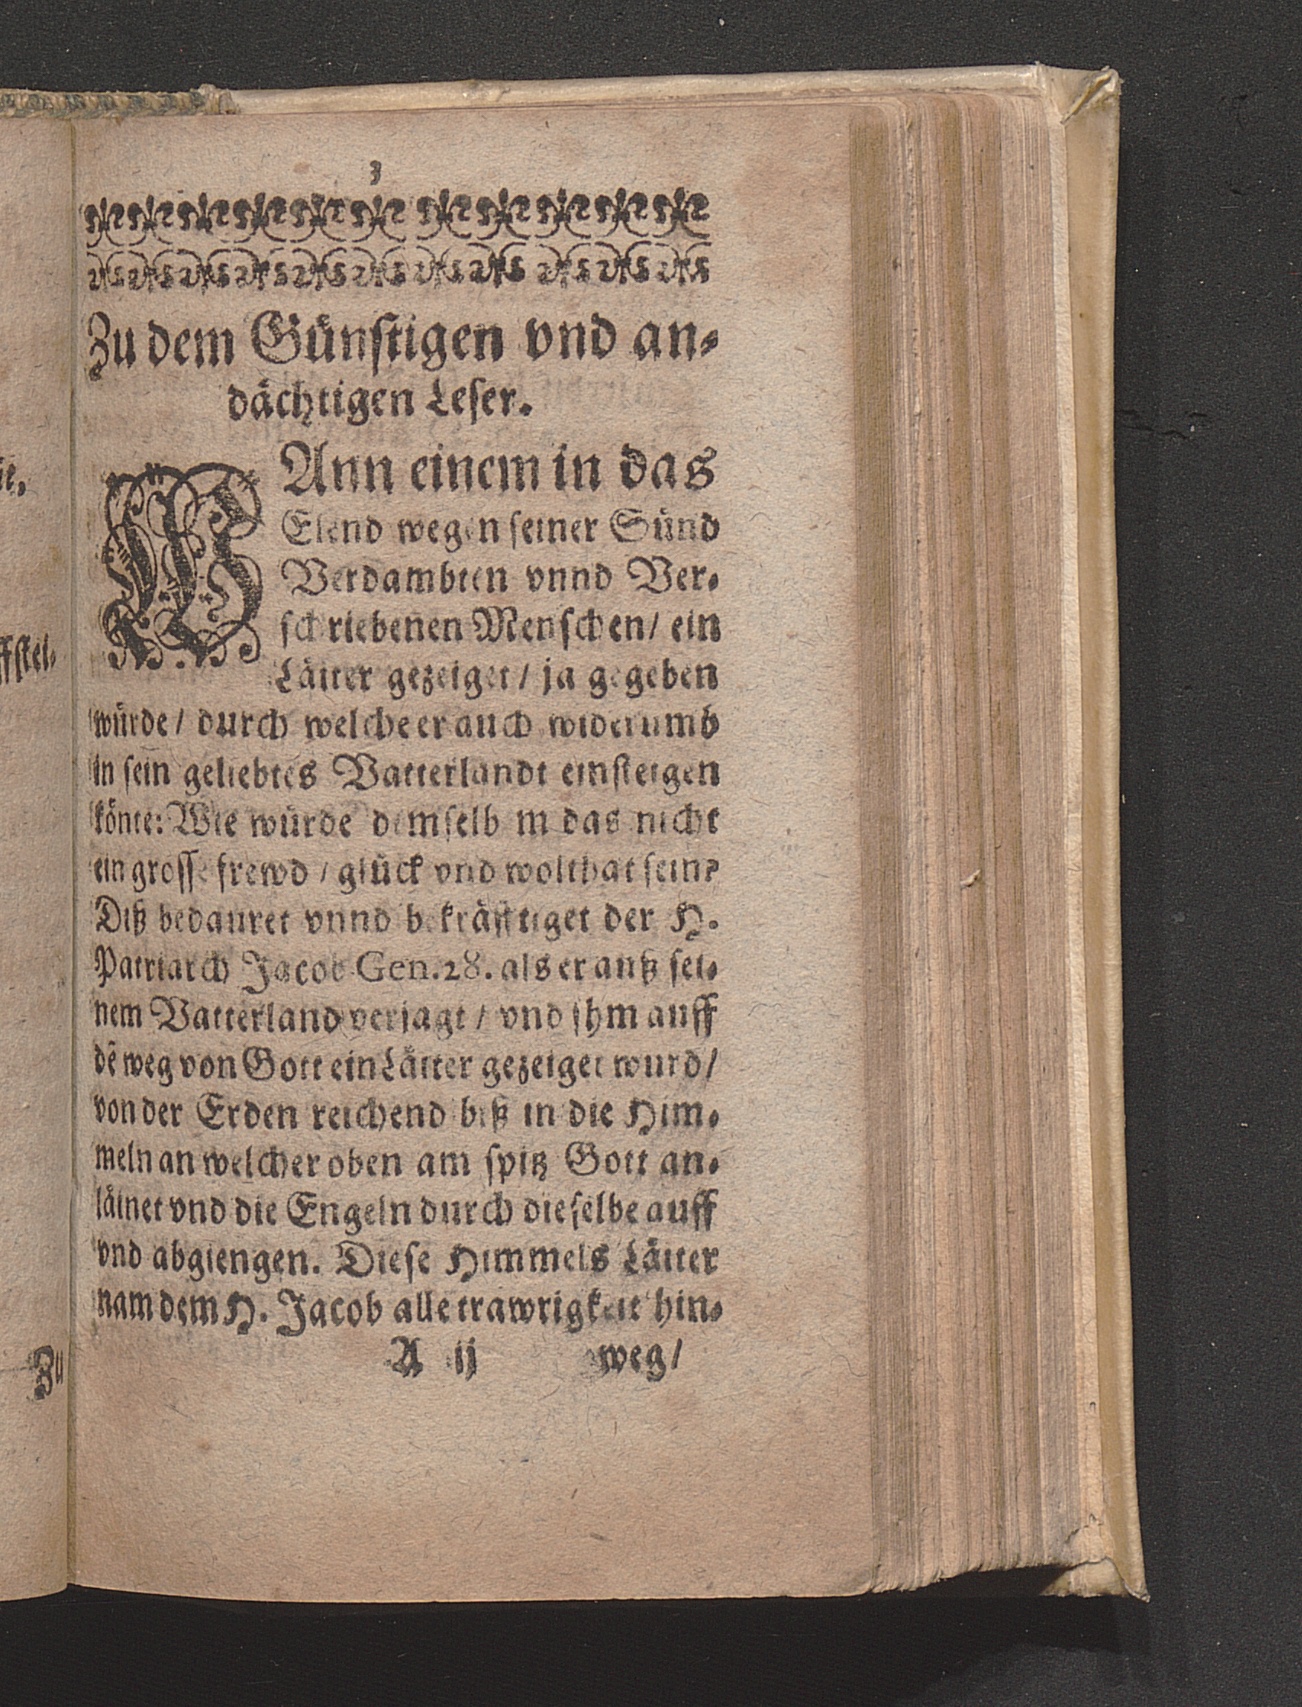 3
Zu dem Günstigen vnd an-
dächtigen Leser.
WAnn einem in das
Elend wegen seiner Sünd
Verdambten vnnd Ver-
schriebenen Menschen/ ein
Läiter gezeiget/ ja gegeben
würde/ durch welche er auch widerumb
in sein geliebtes Vatterlandt einsteigen
könte: Wie würde demselb m das nicht
ein grosse frewd/ glück vnd wolthat sein?
Diß bedauret vnnd bekräfftiget der H.
Patriarch Jacob Gen. 28. als er auß sei-
nem Vatterland verjagt/ vnd ihm auff
dẽ weg von Gott ein Läiter gezeiget wurd/
von der Erden reichend biß in die Him-
meln an welcher oben am spitz Gott an-
läinet vnd die Engeln durch dieselbe auff
vnd abgiengen. Diese Himmels Läiter
nam dem H. Jacob alle trawrigkeit hin-
A ij weg/
ffstel-
Zu